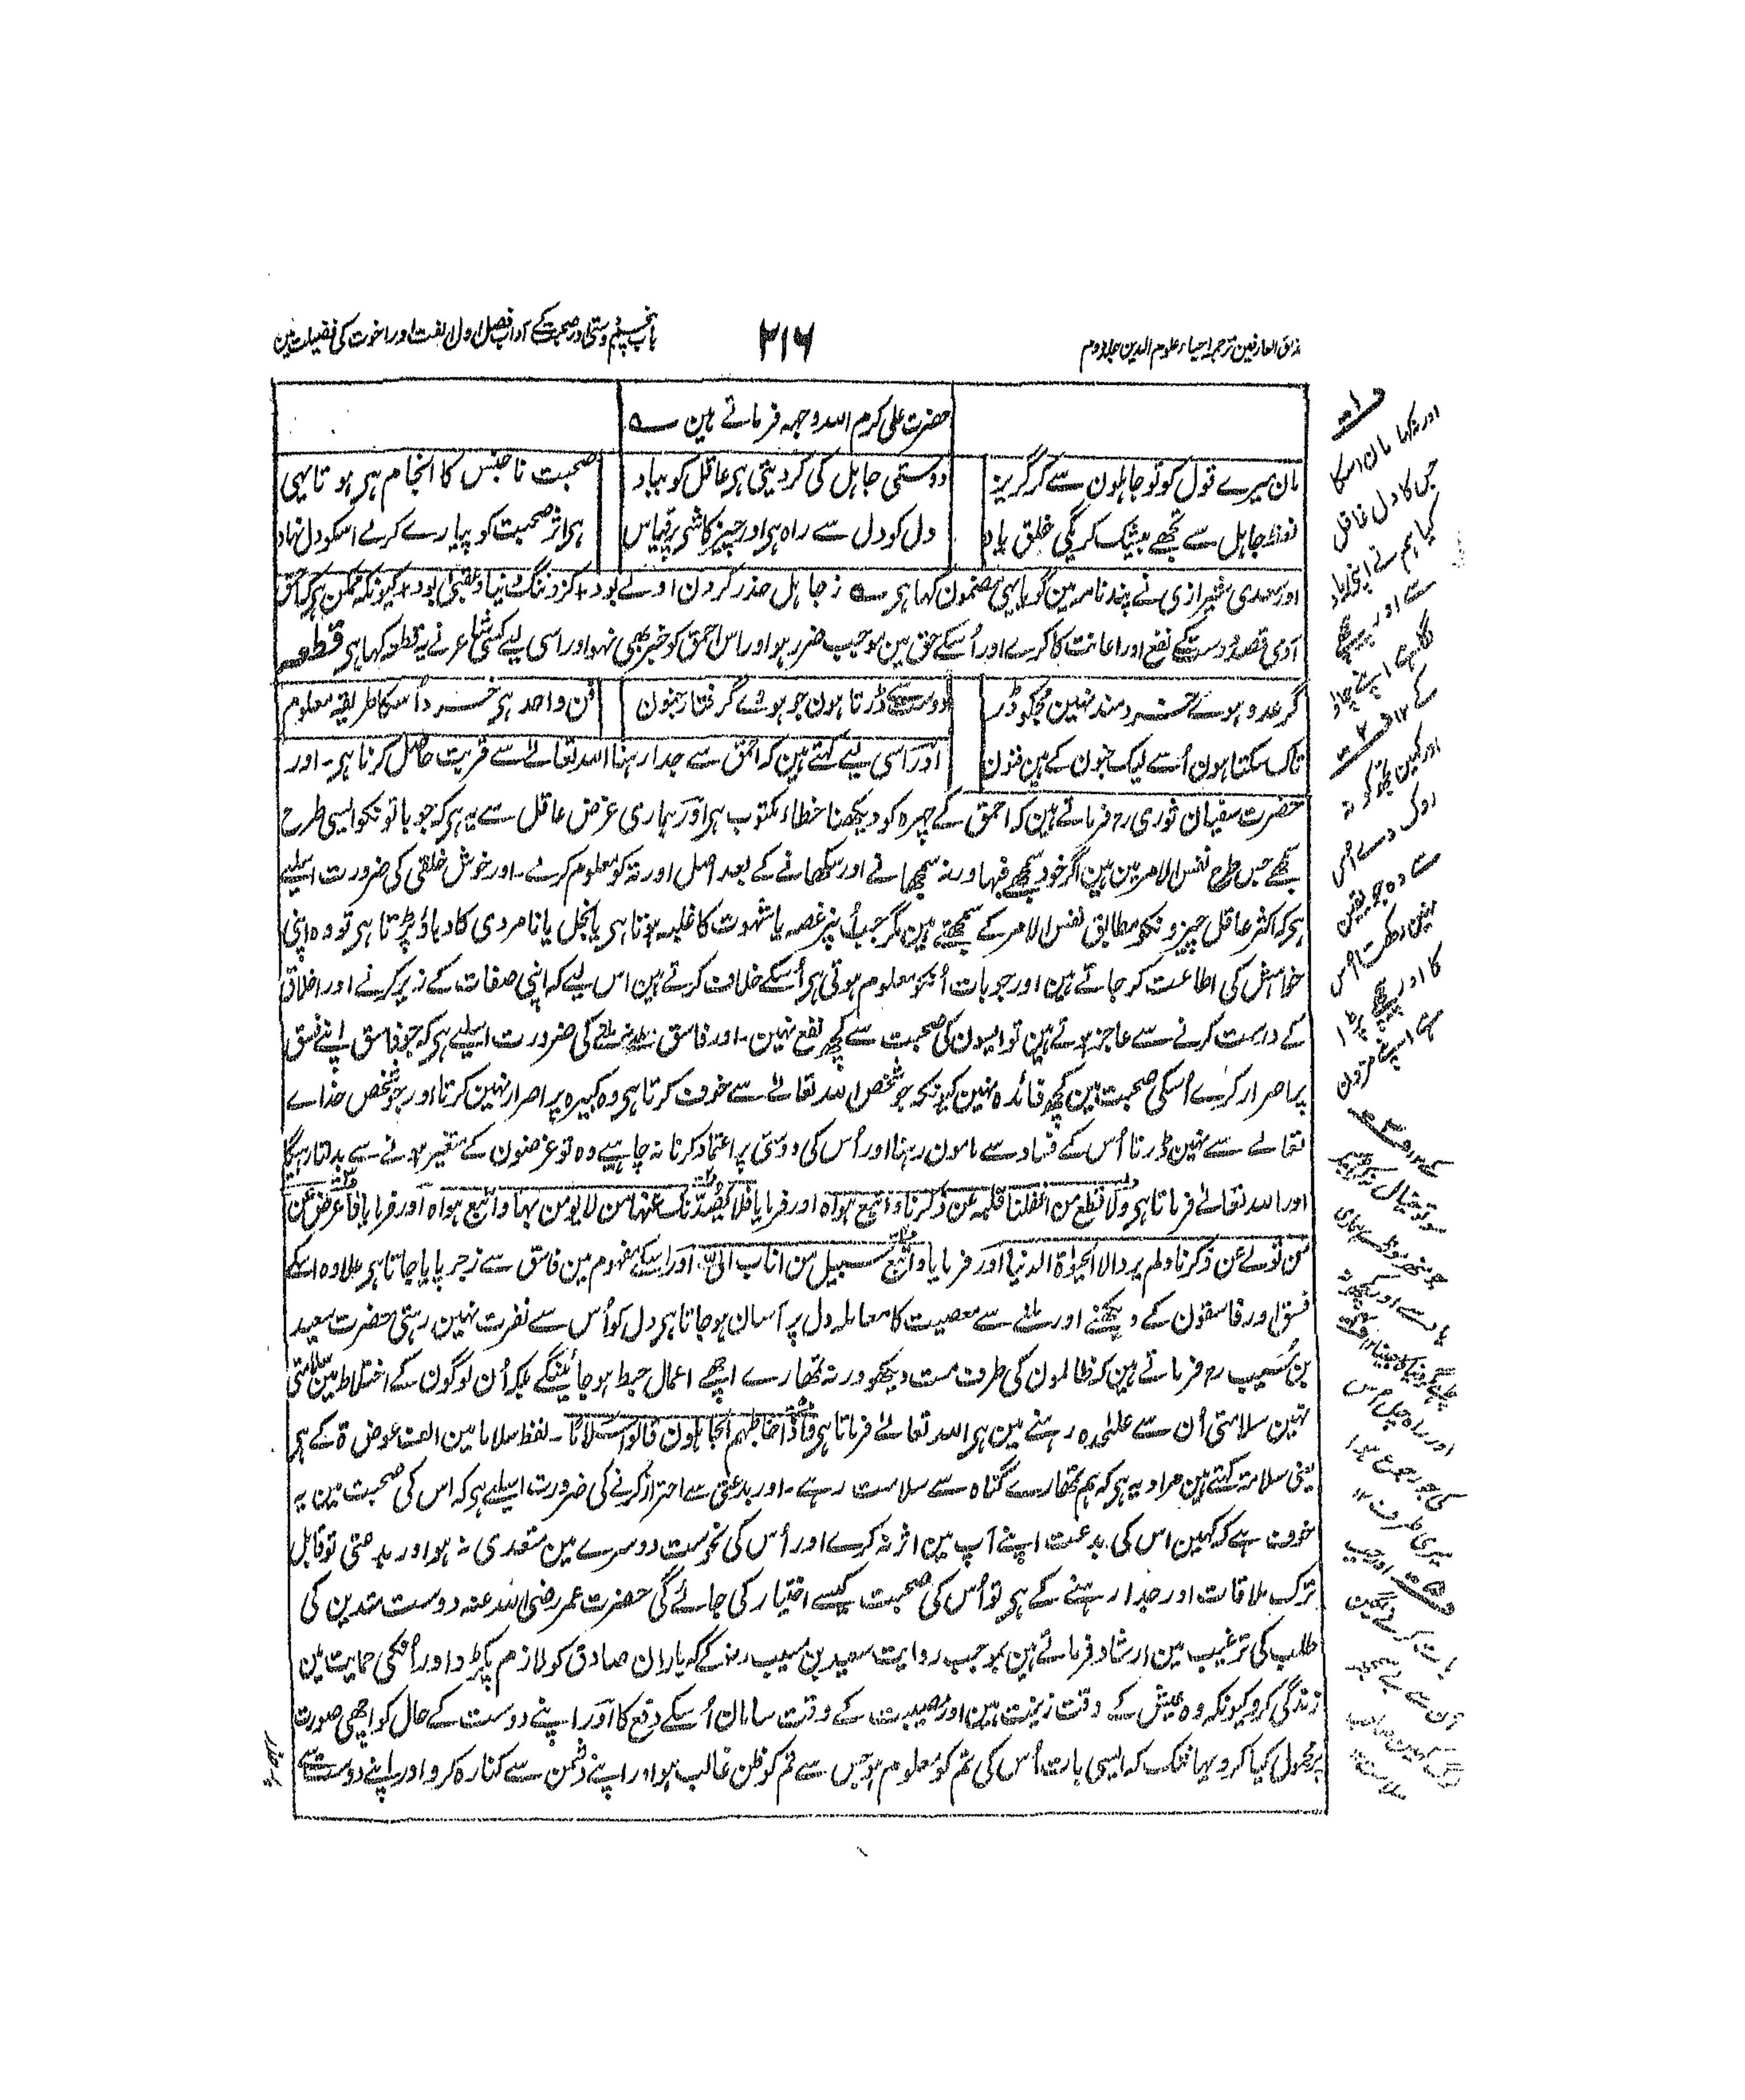 مذاق العارفین ترجمہ احیاء علوم الدین جلد دوم
۲۱۶
باب پنجم دوستی اور صحبت کے آداب فصل اول الفت اور اخوت کی فضیلت مین
حضرت علی کرم اللہ وجہہ فرماتے ہین ؎
مان میرے قول کو تو جاہلون سے کر گریز
دوستی جاہل کی کر دیتی ہی عاقل کو بباد
صحبت ناجنس کا انجام ہی ہوتا یہی
لفظ جاہل سے تجھے بیشک کریگی خلق یاد
دل کو دل سے راہ ہی اور چیز کا شی پر قیاس
ہی اثر صحبت کو پیارے کرلے اسکو دل نہاد
اور سعدی شیرازی نے پندنامہ مین گویا یہی مضمون کہا ہی ؎ ز جاہل حذر کردن اولے بود + کزو ننگ دنیا و عقبیٰ بود + کیونکہ ممکن ہی کہ احمق
آدمی قصد دوست کے نفع اور اعانت کا کرے اور اُسکے حق مین موجب ضرر ہو اور اس احمق کو خبر بھی نہو اور اسی لیے کسی شاعر نے یہ قطعہ کہا ہی قطعہ
گر عدو ہووے خردمند نہین مجکو ڈر
دوست سے ڈرتا ہون جو ہووے گرفتار جنون
فن واحد ہی خرد اُسکا طریقہ معلوم
تاک سکتا ہون اُسے لیک جنون کے ہین فنون
اور اسی لیے کہتے ہین کہ احمق سے جدا رہنا اللہ تعالےٰ سے قربت حاصل کرنا ہی۔ اور
حضرت سفیان ثوری رح فرماتے ہین کہ احمق کے چہرہ کو دیکھنا خطاء مکتوب ہی اور ہماری غرض عاقل سے یہ ہی کہ جو باتونکو ایسی طرح
سمجھے جس طرح نفس الامر مین ہین اگر خود سمجھے فبہا ورنہ سمجھانے اور سکھانے کے بعد اصل اور تہ کو معلوم کرلے۔ اور خوش خلقی کی ضرورت اسلیے
ہی کہ اکثر عاقل چیزونکو مطابق نفس الامر کے سمجھتے ہین مگر جب اُنپر غصہ یا شہوت کا غلبہ ہوتا ہی یا بخل یا نامردی کا دباؤ پڑتا ہی تو وہ اپنی
خواہش کی اطاعت کر جاتے ہین اور جو بات اُنکو معلوم ہوتی ہی اُسکے خلاف کرتے ہین اس لیے کہ اپنی صفات کے زیر کرنے اور اخلاق
کے درست کرنے سے عاجز ہوتے ہین تو ایسون کی صحبت سے کچھ نفع نہین۔ اور فاسق نہونے کی ضرورت اسلیے ہی کہ جو فاسق اپنے فسق
پر اصرار کرے اُسکی صحبت مین کچھ فائدہ نہین کیونکہ جو شخص اللہ تعالےٰ سے خوف کرتا ہی وہ کبیرہ پر اصرار نہین کرتا اور جو شخص خداے
تعالےٰ سے نہین ڈرتا اُس کے فساد سے مامون رہنا اور اُس کی دوستی پر اعتماد کرنا نہ چاہیے وہ تو غرضون کے متغیر ہونے سے بدلتا رہیگا
اور اللہ تعالےٰ فرماتا ہی ولا تطع من اغفلنا قلبہ عن ذکرنا واتبع ہواہ اور فرمایا فلا یصدنک عنہا من لا یومن بہا واتبع ہواہ اور فرمایا فاعرض عن
من تولے عن ذکرنا ولم یرد الا الحیوٰۃ الدنیا اور فرمایا واتبع سبیل من اناب الیّ اور اسکے مفہوم مین فاسق سے زجر پایا جاتا ہی علاوہ اسکے
فسق اور فاسقون کے دیکھنے اور ملنے سے معصیت کا معاملہ دل پر آسان ہو جاتا ہی دل کو اُس سے نفرت نہین رہتی حضرت سعید
بن مسیب رح فرماتے ہین کہ ظالمون کی طرف مت دیکھو ورنہ تمھارے اچھے اعمال حبط ہو جائینگے بلکہ اُن لوگون کے اختلاط مین سلامتی
نہین سلامتی اُن سے علیٰحدہ رہنے مین ہی اللہ تعالےٰ فرماتا ہی واذا خاطبہم الجاہلون قالوا سلاما۔ لفظ سلاما مین الف عوض ۃ کے ہی
یعنی سلامۃ کہتے ہین مراد یہ ہی کہ ہم تمھارے گناہ سے سلامت رہے۔ اور بدعتی سے احتراز کرنے کی ضرورت اسلیے ہی کہ اس کی صحبت مین یہ
خوف ہے کہ کہین اس کی بدعت اپنے آپ مین اثر نہ کرے اور اُس کی نحوست دوسرے مین متعدی نہ ہو اور بدعتی تو قابل
ترک ملاقات اور جدا رہنے کے ہی تو اُس کی صحبت کیسے اختیار کی جائے گی حضرت عمر رضی اللہ عنہ دوست متدین کی
طلب کی ترغیب مین ارشاد فرماتے ہین بموجب روایت سعید بن مسیب رح کے کہ یاران صادق کو لازم پکڑو اور اُنکی حمایت مین
زندگی کرو کیونکہ وہ عیش کے وقت زینت ہین اور مصیبت کے وقت سامان اُسکے دفع کا اور اپنے دوست کے حال کو اچھی صورت
پر محمول کیا کرو یہانتک کہ ایسی بات اُس کی تم کو معلوم ہو جس سے تم کو ظن غالب ہو اور اپنے دشمن سے کنارہ کرو اور اپنے دوست سے
اور نہ کہا مان اسکا
جس کا دل غافل
کیا ہم نے اپنی یاد
سے اور پیچھے
لگا ہے اپنے چاؤ
کے ۱۲
اور کہین تجکو نہ
روک دے اس
سے وہ جو یقین
نہین رکھتا اس
کا اور پیچھے پڑا
ہے اپنے مزون
جو منھ موڑے ہماری
یاد سے اور کچھ نہ
چاہے مگر دنیا کا جینا
اور راہ چل اس
کی جو رجوع ہوا
میری طرف ۱۲
اور جب
بات کرنے لگین
اُن سے بے سمجھ